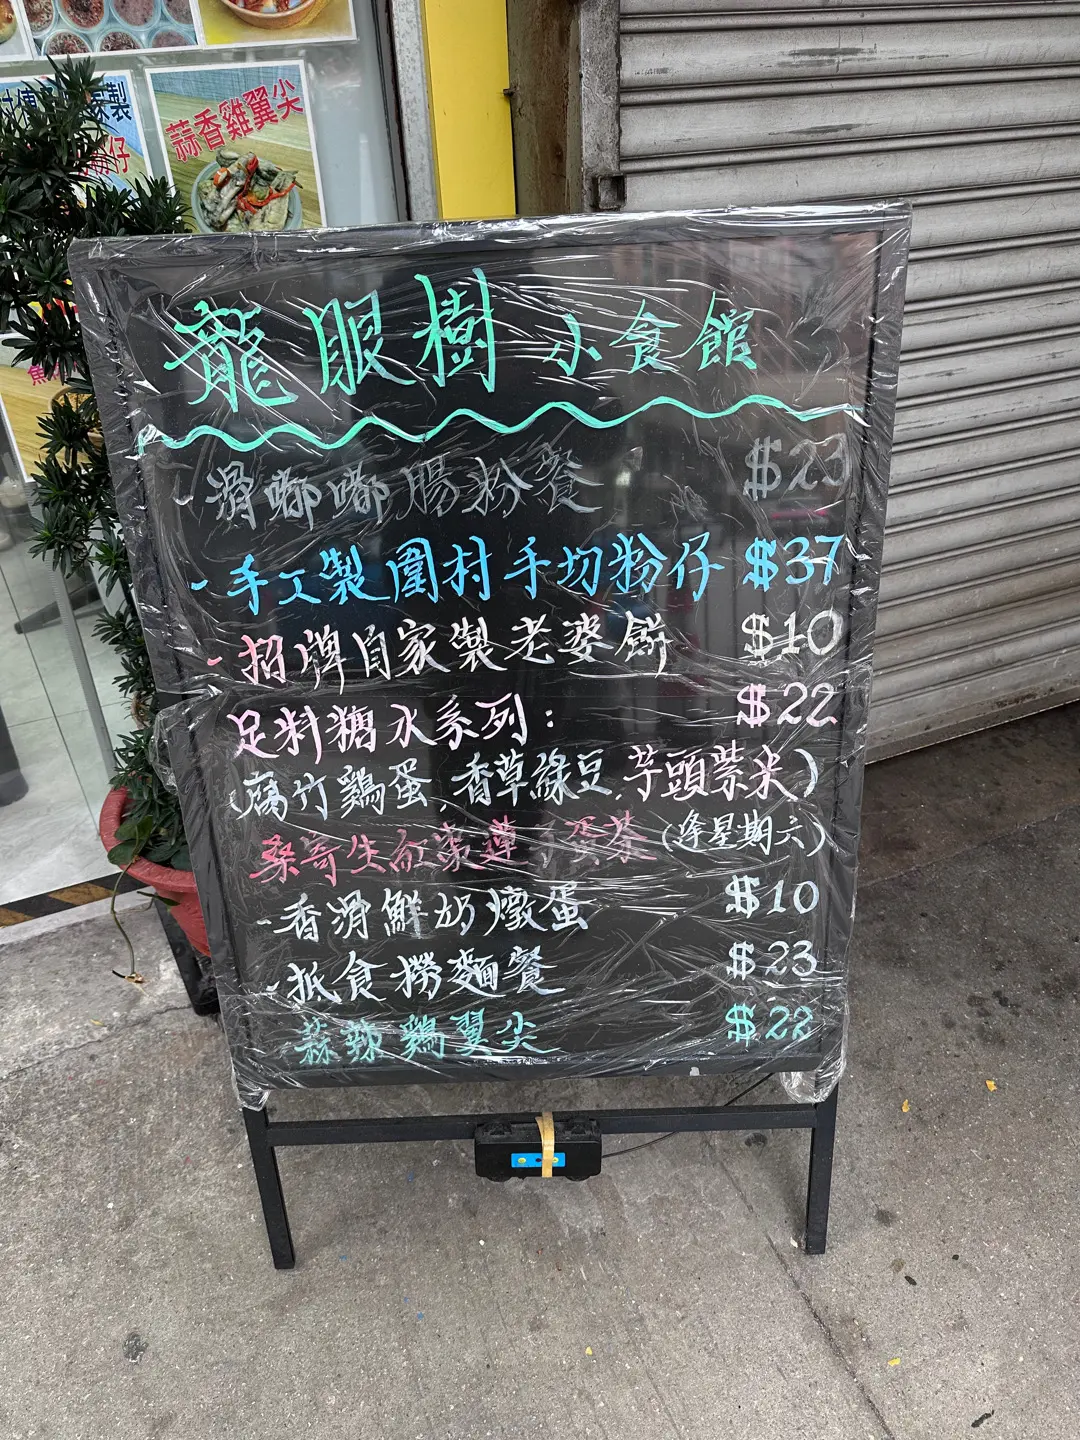 家製
粉仔
蒜香雞翼尖
龍眼樹小食館
滑嘟嘟腸粉餐 $23
- 手工製圍村手切粉仔 $37
- 招牌自家製老婆餅 $10
足料糖水系列: $22
(腐竹鷄蛋,香草綠豆,芋頭紫米)
桑寄生紅棗蓮子蛋茶(逢星期六)
- 香滑鮮奶燉蛋 $10
- 抵食撈麵餐 $23
蒜辣鷄翼尖 $22